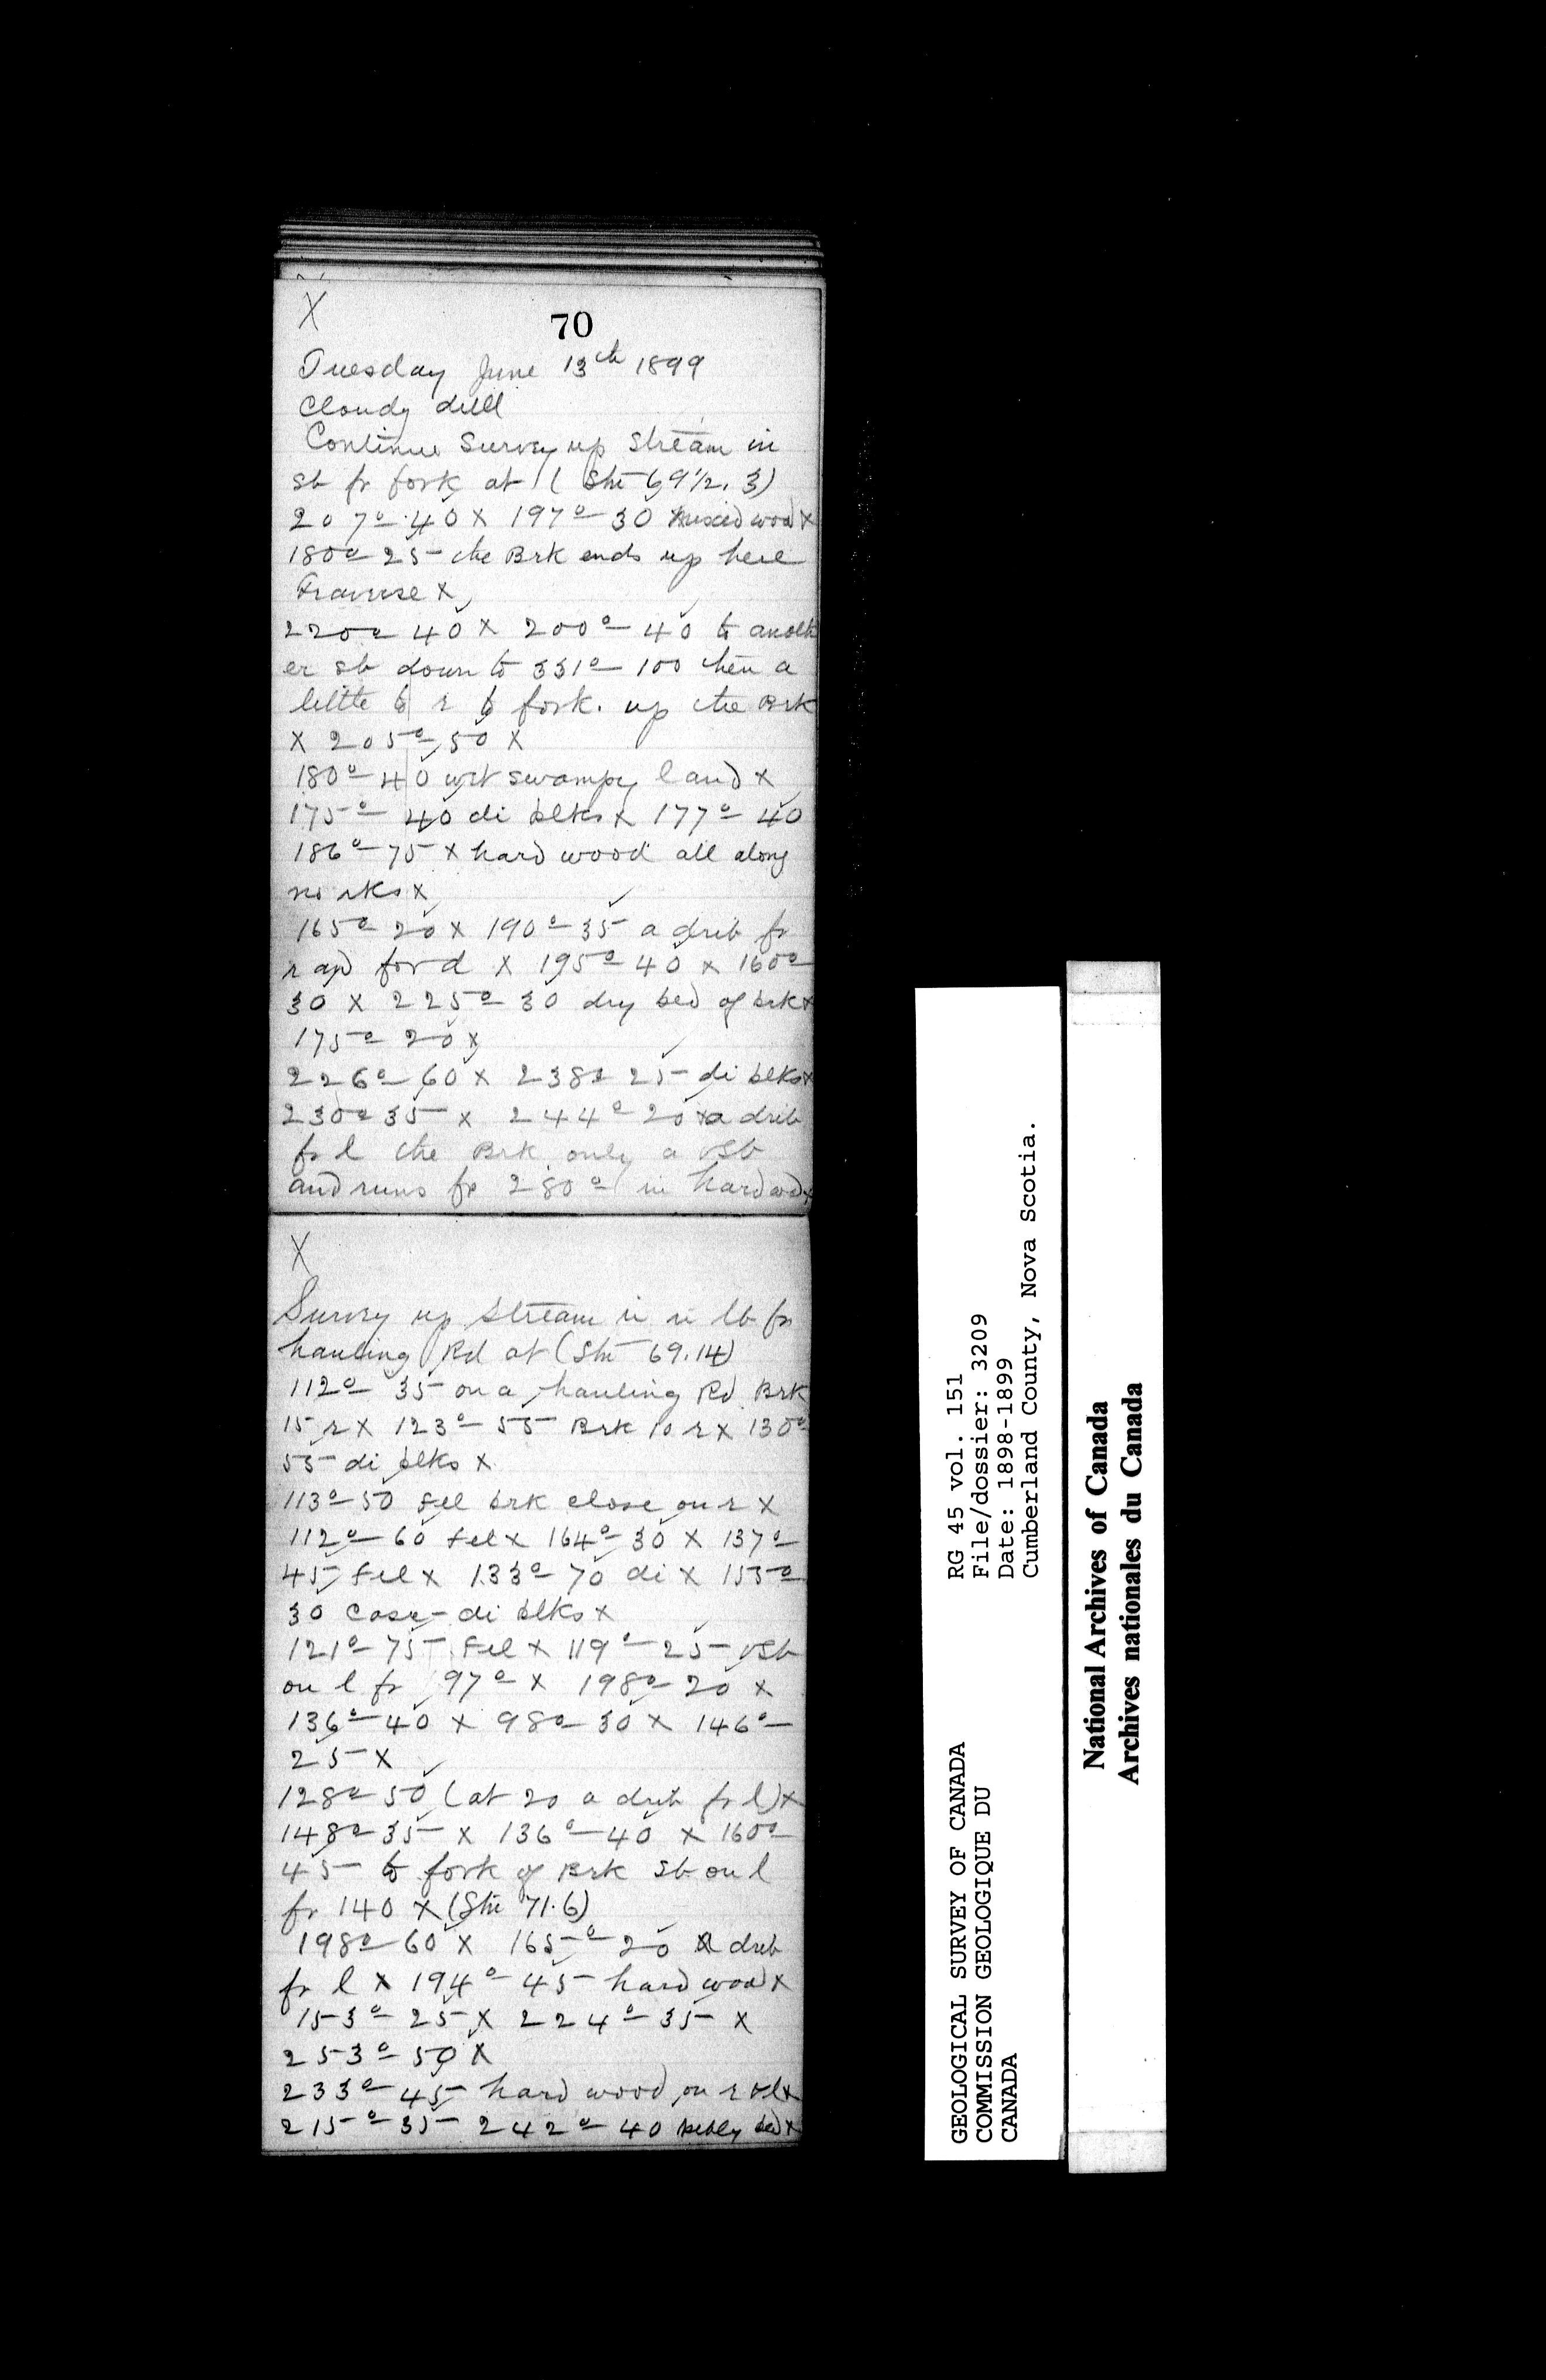 X
70
Tuesday June 13th 1899
Cloudy dull
Continue Survey up stream in
sb fr fork at ( Stn 69 1/2. 3)
207° 40 X 197° 30 mixed wood X
180° 25 the Brk ends up here
Traverse X
220° 40 X 200° 40 to anoth
er sb down to 331° 100 then a
little to r to fork. up the Brk
X 205° 50 X
180° 40 wet swampy land X
175° 40 di blks X 177° 40
186° 75 X hard wood all along
no rks X
165° 20 X 190° 35 a drib fr
r and for d X 195° 40 X 160°
30 X 225° 30 dry bed of brk X
175° 20 X
226° 60 X 238° 25 di blks X
230° 35 X 244° 20 X a drib
fr l the Brk only a vsb
and runs fr 280° in hard wd X
X
Survey up stream in lb fr
hauling Rd at (Stn 69.14)
112° 35 on a hauling Rd Brk
15 r X 123° 55 Brk 10 r X 130°
55 di blks X
113° 50 fel brk close on r X
112° 60 fel X 164° 30 X 137°
45 fel X 133° 70 di X 155°
30 coar di blks X
121° 75 fel X 119° 25 vsb
on l fr 97° X 198° 20 X
136° 40 X 98° 30 X 146°
25 X
128° 50 (at 20 a drib fr l) X
148° 35 X 136° 40 X 160°
45 to fork of Brk sb on l
fr 140 X (Stn 71.6)
198° 60 X 165° 20 a drib
fr l X 194° 45 hard wood X
153° 25 X 224° 35 X
253° 50 X
233° 45 hard wood on r &l X
215° 35 242° 40 pebly bed X
GEOLOGICAL SURVEY OF CANADA
COMMISSION GEOLOGIQUE DU
CANADA
RG 45 vol. 151
File/dossier: 3209
Date: 1898-1899
Cumberland County, Nova Scotia.
National Archives of Canada
Archives nationales du Canada